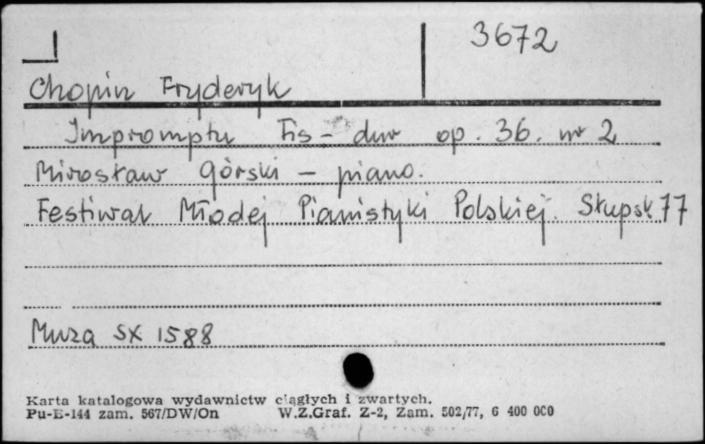 3672
Chopin Fryderyk
Impromptu Fis-dur op. 36. nr 2
Mirosław Górski - piano.
Festiwal Młodej Pianistyki Polskiej. Słupsk 77
Muza SX 1588
Karta katalogowa wydawnictw ciągłych i zwartych.
Pu-E-144 zam. 567/DW/On W.Z.Graf. Z-2, Zam. 502/77, 6 400 000